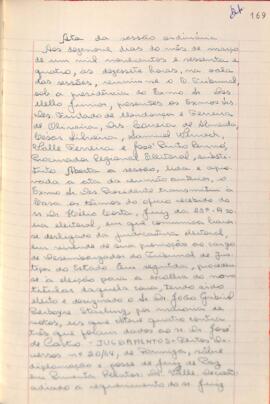 169
Ata da sessão ordinária
Aos dezenove dias do mês de março
de um mil novecentos e sessenta e
quatro, às dezessete horas, na sala
das sessões, reuniu-se o Tribunal
sob a presidência do Exmo Sr. Des.
Mello Júnior, presentes os Exmos Srs.
Des. Furtado de Mendonça e Ferreira
de Oliveira, Drs. Correia de Almeida,
Cesar Silveira,
Valle Ferreira e José Pinto Renno,
Procurador Regional Eleitoral, substi-
tuto. Aberta a sessão, lida e apro-
vada a ata da reunião anterior, o
Exmo Sr. Des. Presidente transmitiu à
Casa os têrmos do ofício recebido do
Sr. Dr. Hélio Costa, Juiz da zo-
na eleitoral, em que comunica haver-
se desligado da judicatura eleitoral,
em virtude de sua promoção ao cargo
de Desembargador do Tribunal de Jus-
tiça do Estado. Em seguida, procedeu-
se à eleição para a escolha do novo
titular daquela zona, tendo sido
eleito e designado o Sr. Dr. João Gabriel
Starling, por maioria de
votos, eis que obteve quatro contra
três que foram dados ao Sr. Dr. José
de Castro. - JULGAMENTOS - Re-
cursos nº 20/64, de Formiga, sobre
diplomação e posse de juiz de Paz.
Pimenta. Relator: Dr. Valle. Decisão:
adiado a requerimento do Sr. Juiz